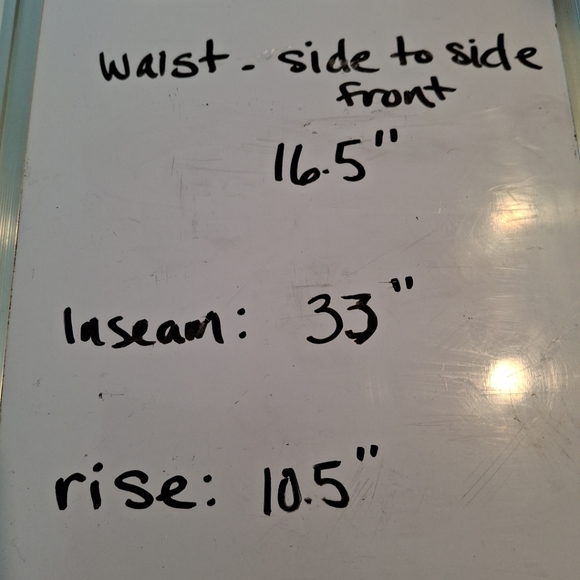 waist - side to side
front
16.5"
Inseam: 33"
rise: 10.5"